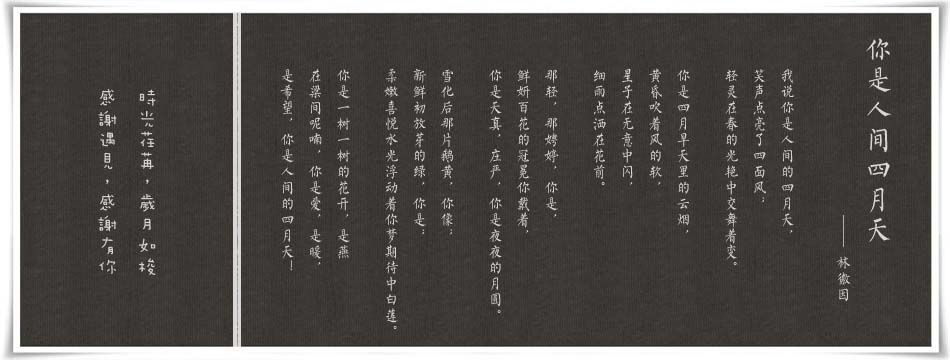 你是人间四月天
——林徽因
我说你是人间的四月天，
笑声点亮了四面风；
轻灵在春的光艳中交舞着变。
你是四月早天里的云烟，
黄昏吹着风的软，
星子在无意中闪，
细雨点洒在花前。
那轻，那娉婷，你是，
鲜妍百花的冠冕你戴着，
你是天真，庄严，你是夜夜的月圆。
雪化后那片鹅黄，你像；
新鲜初放芽的绿，你是；
柔嫩喜悦水光浮动着你梦期待中白莲。
你是一树一树的花开，是燕
在梁间呢喃，你是爱，是暖，
是希望，你是人间的四月天！
時光荏苒，歲月如梭
感謝遇見，感謝有你